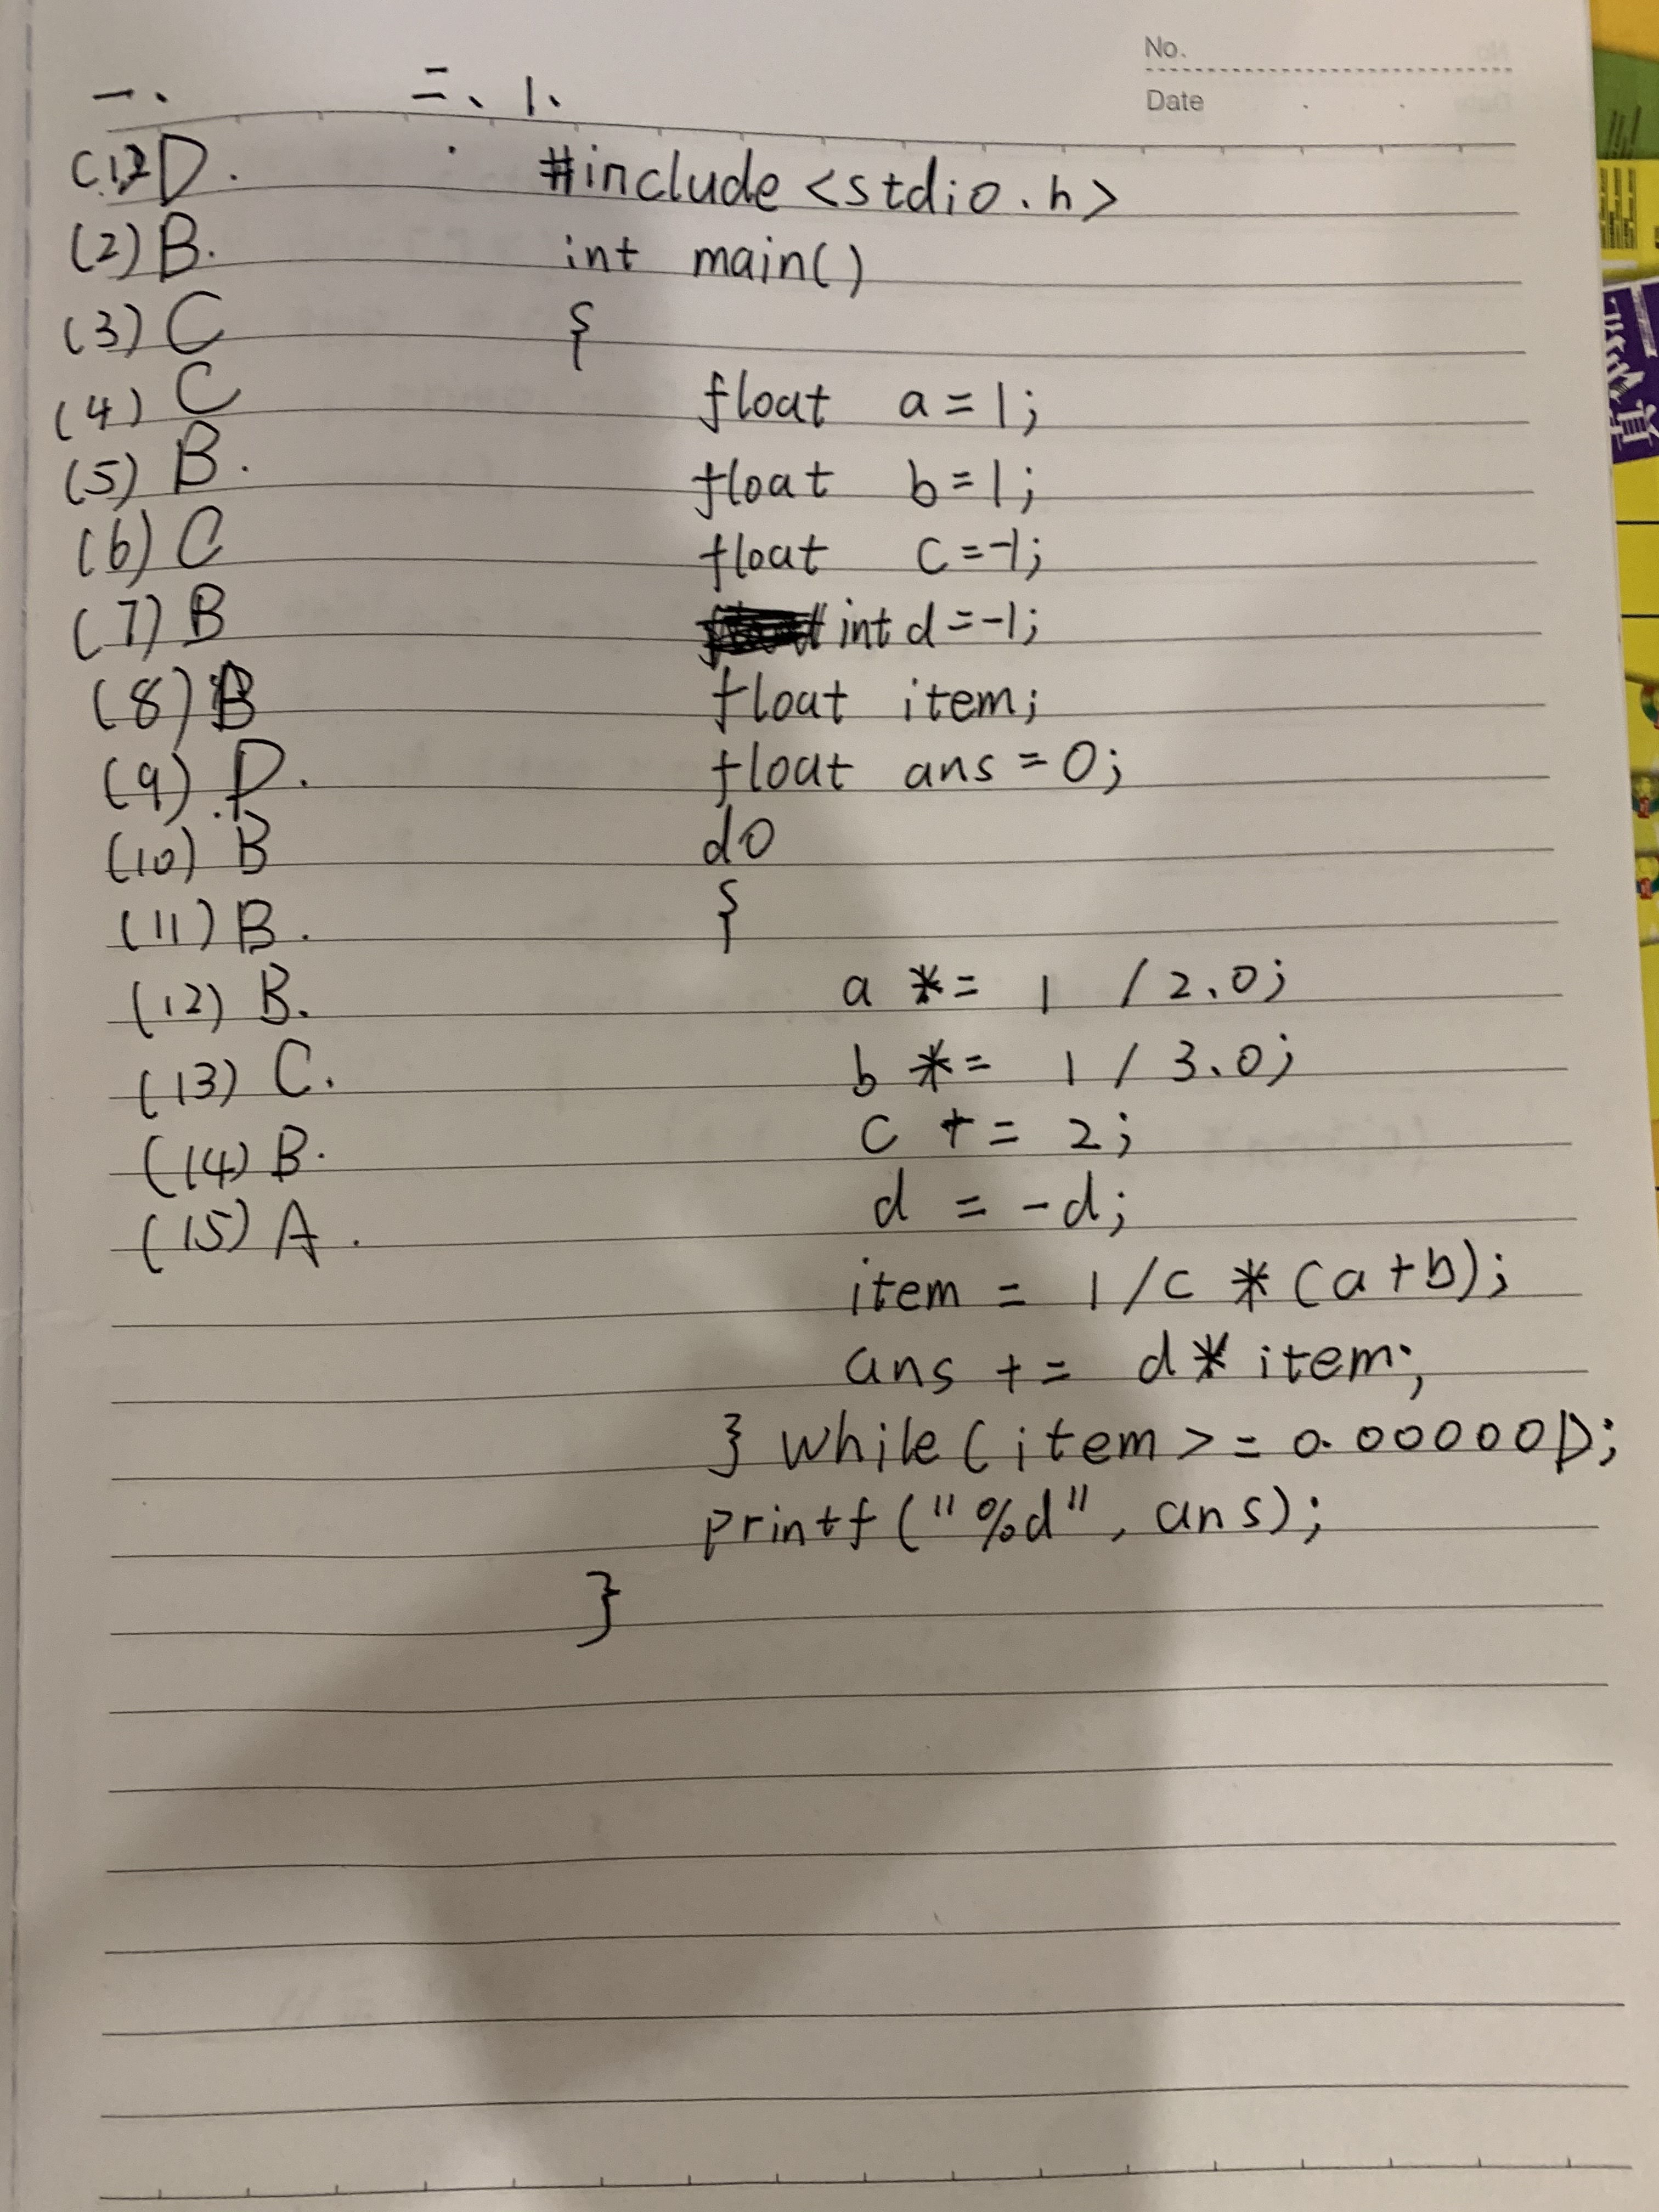 No.
Date
一、
(1) D.
(2) B.
(3) C
(4) C
(5) B.
(6) C
(7) B
(8) B
(9) D.
(10) B
(11) B.
(12) B.
(13) C.
(14) B.
(15) A.
二、1、
#include <stdio.h>
int main()
{
float a = 1;
float b = 1;
float c = -1;
int d = -1;
float item;
float ans = 0;
do
{
a *= 1 / 2.0;
b *= 1 / 3.0;
c += 2;
d = -d;
item = 1/c * (a+b);
ans += d * item;
} while (item >= 0.000001);
printf("%d", ans);
}